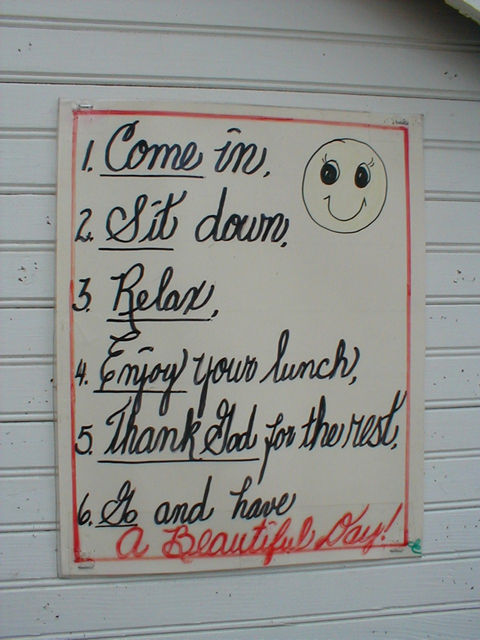 1. Come in,
2. Sit down,
3. Relax,
4. Enjoy your lunch,
5. Thank God for the rest,
6. Go and have
A Beautiful Day!